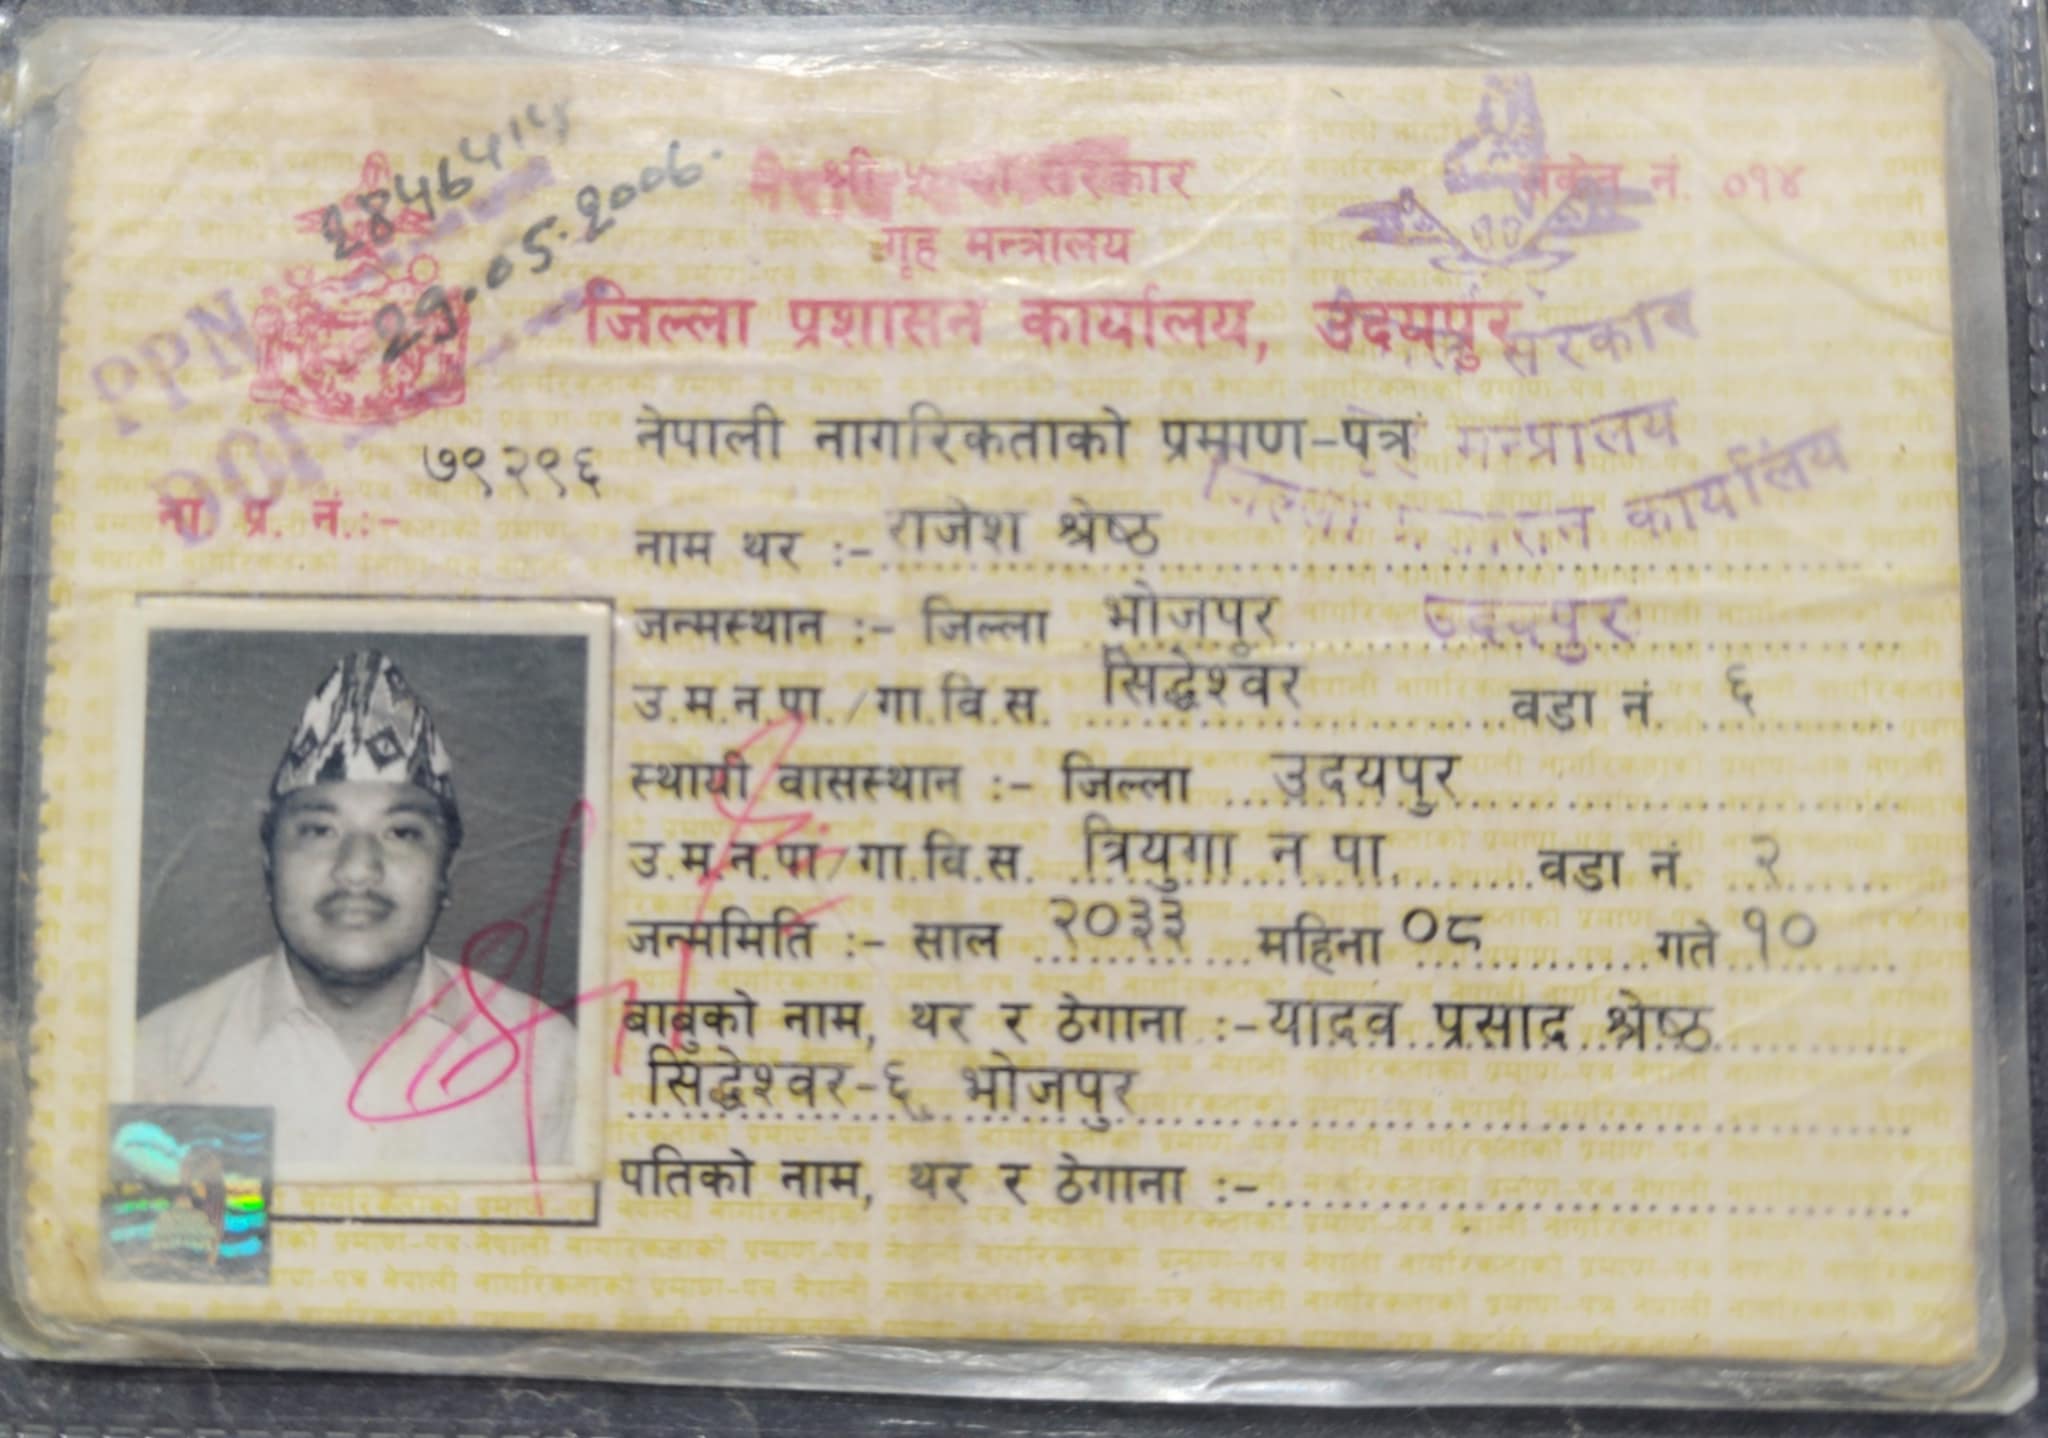 2846414
29.05.2006.
PPN
DOI
श्री सरकार
संकेत नं. ०१४
गृह मन्त्रालय
जिल्ला प्रशासन कार्यालय, उदयपुर
सरकार
नेपाली नागरिकताको प्रमाण-पत्र
मन्त्रालय
जिल्ला कार्यालय
उदयपुर
ना. प्र. नं.:- ७९२९६
नाम थर :- राजेश श्रेष्ठ
जन्मस्थान :- जिल्ला भोजपुर
उ.म.न.पा./गा.वि.स. सिद्धेश्वर वडा नं. ६
स्थायी वासस्थान :- जिल्ला उदयपुर
उ.म.न.पा/गा.वि.स. त्रियुगा न.पा. वडा नं. २
जन्ममिति :- साल २०३३ महिना ०८ गते १०
बाबुको नाम, थर र ठेगाना :- यादव प्रसाद श्रेष्ठ
सिद्धेश्वर-६, भोजपुर
पतिको नाम, थर र ठेगाना :-